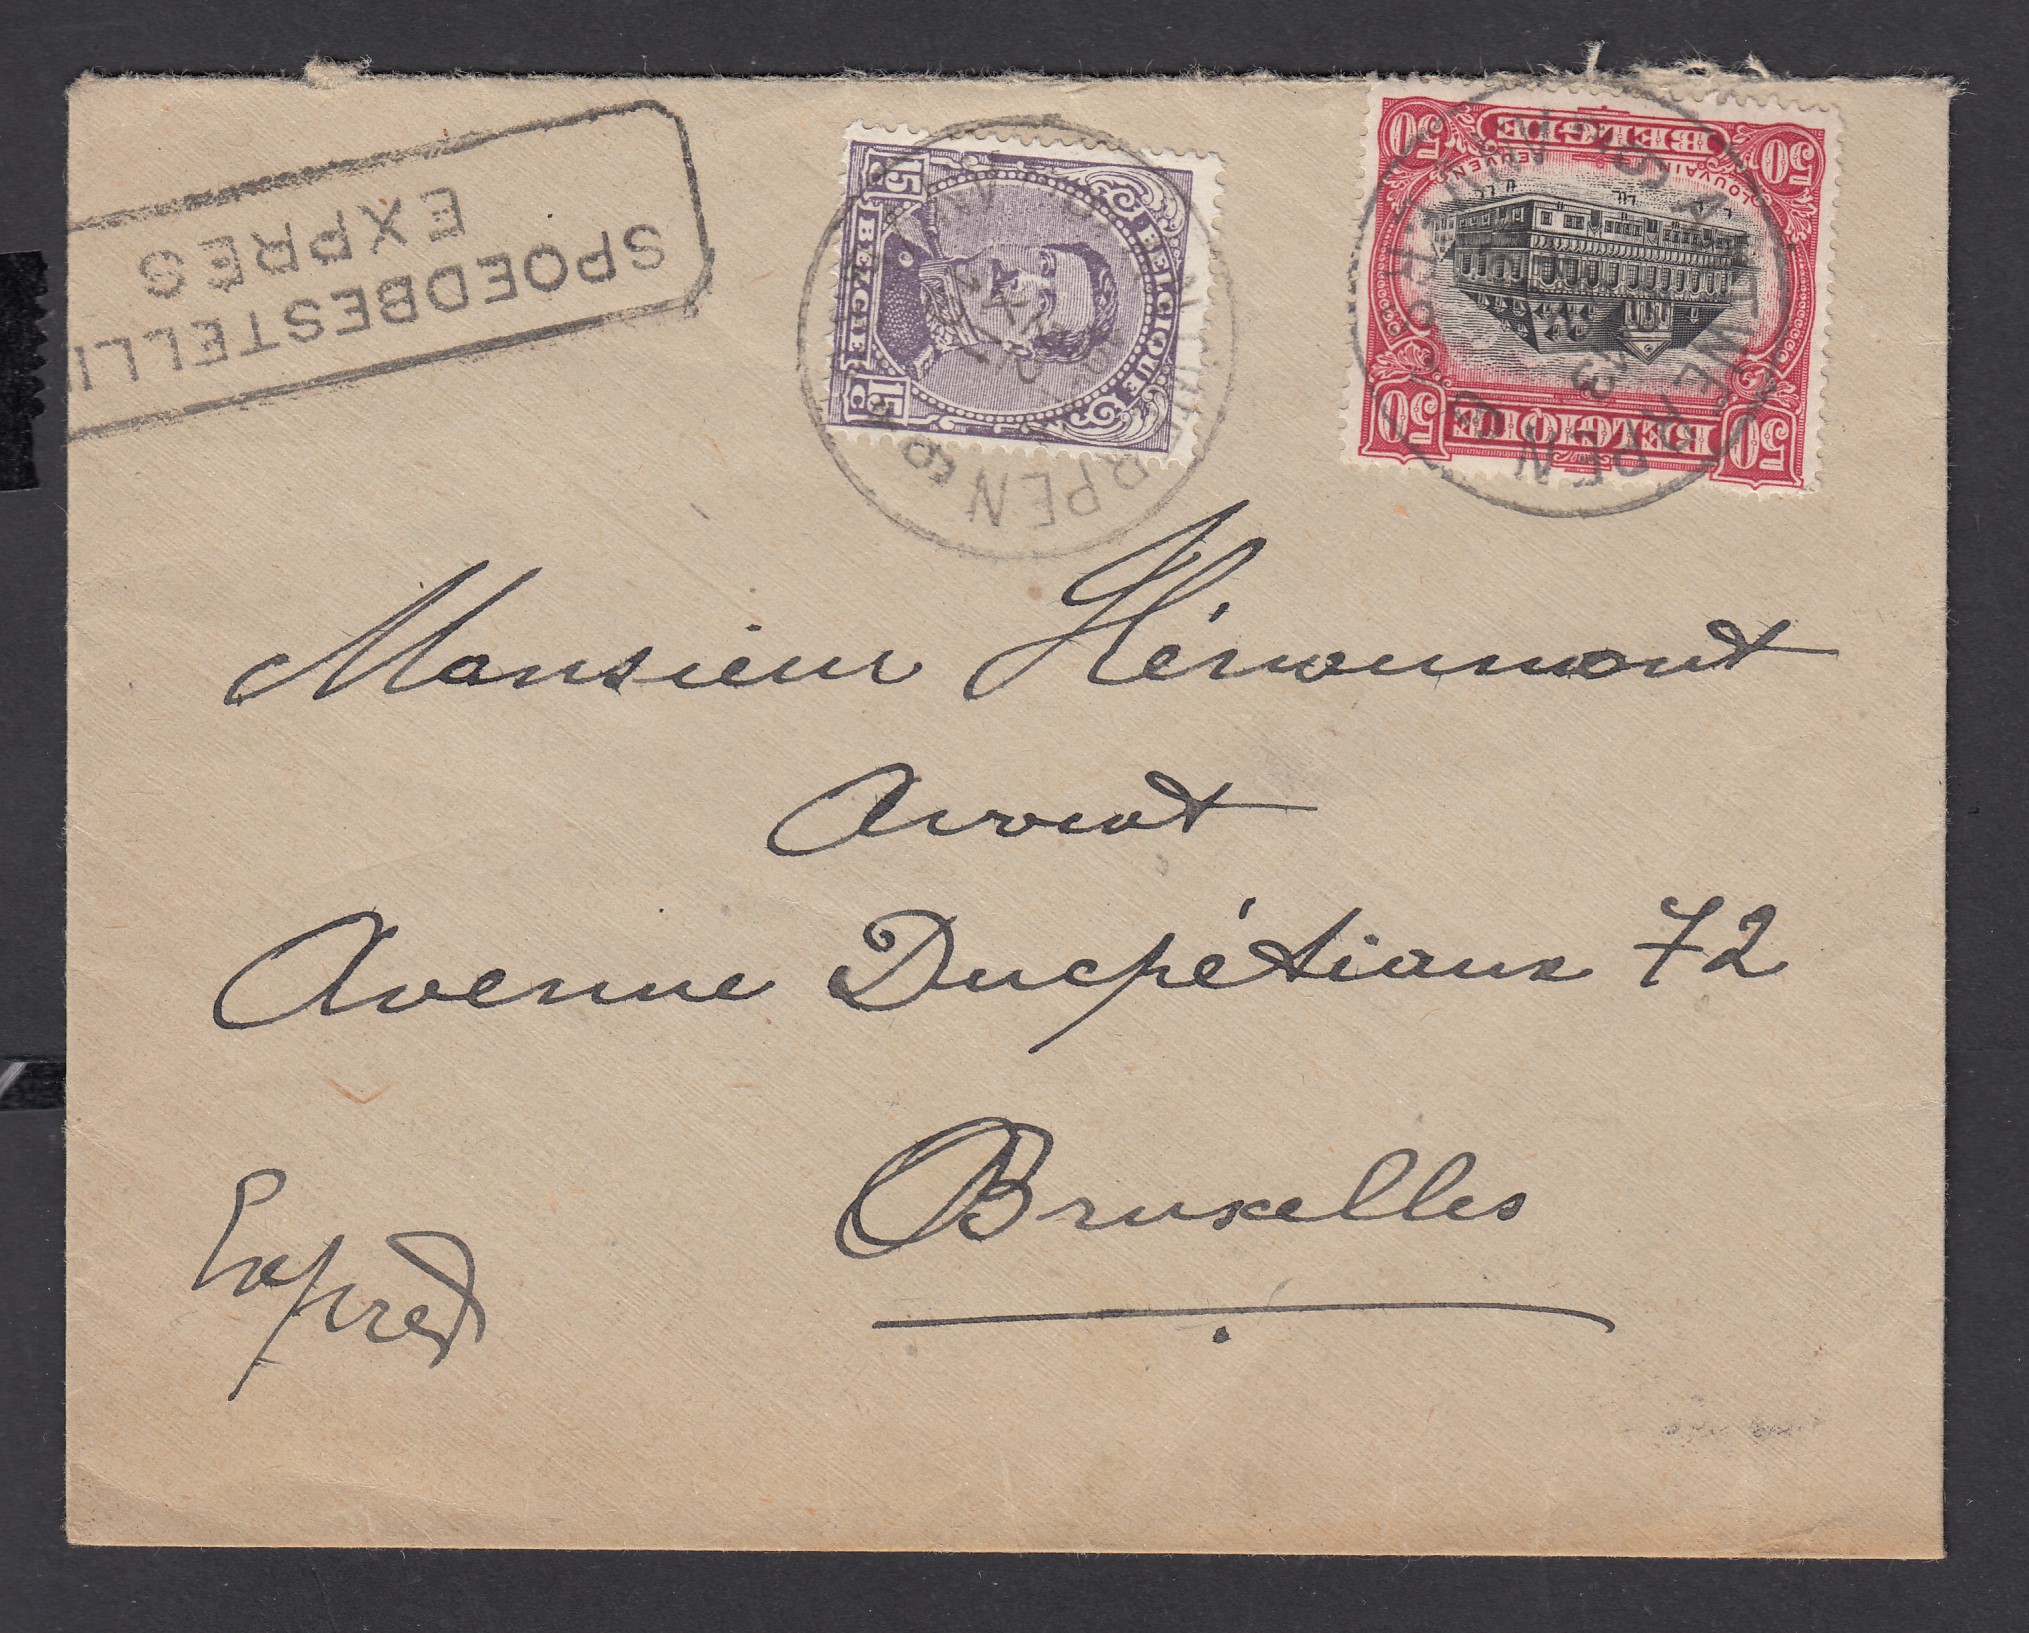 SPOEDBESTELLI
EXPRES
15 c
BELGIQUE
BELGIË
15 c
50
BELGIQUE
50
LOUVAIN
50
BELGIE
50
ANTWERPEN
Monsieur Hénoumont
Avocat
Avenue Ducpétiaux 72
Bruxelles
Exprès